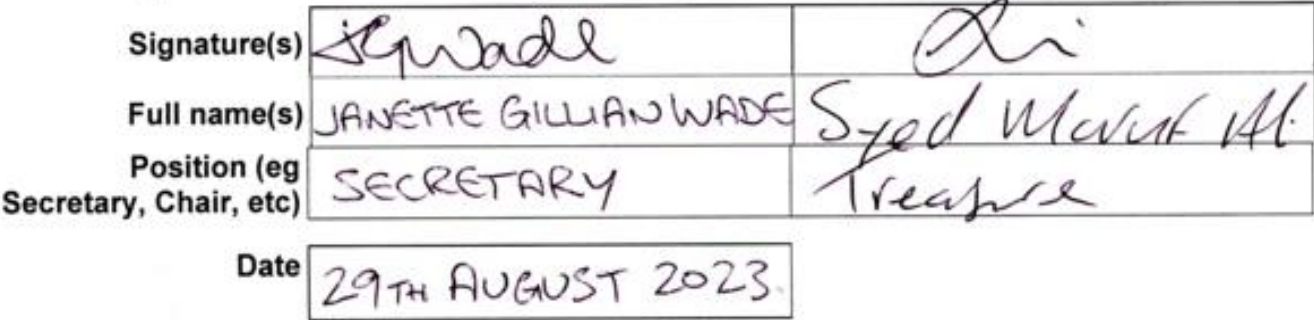 Signature(s) JGWade
Full name(s) JANETTE GILLIAN WADE Syed Maruf Al.
Position (eg
Secretary, Chair, etc) SECRETARY Treasure
Date 29TH AUGUST 2023.